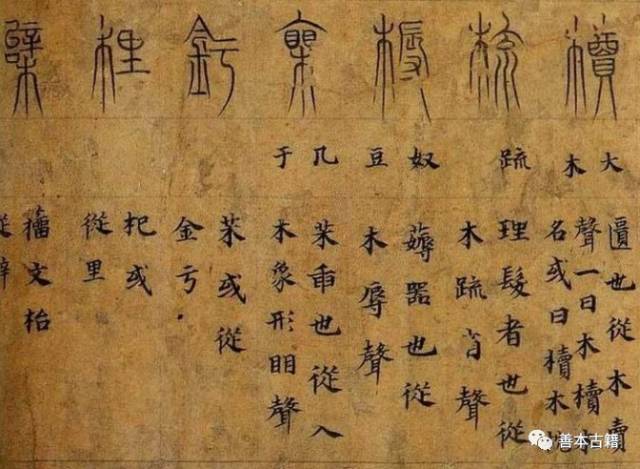 櫝
大木
匵也從木賣
聲一曰木櫝木
名或曰櫝木枕
梳
疏
理髮者也從
木疏省聲
槈
奴豆
薅器也從
木辱聲
几于
苿臿也從入
木象形䀠聲
釫
苿或從
金亏
梩
杞或
從里
籀文枱
善本古籍